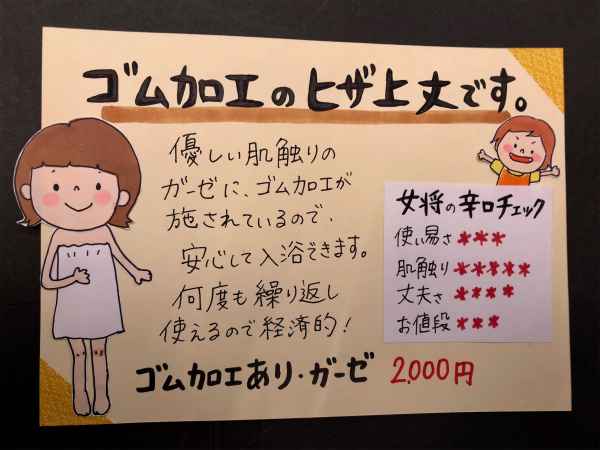 ゴム加工のヒザ上丈です。
優しい肌触りの
ガーゼに、ゴム加工が
施されているので、
安心して入浴できます。
何度も繰り返し
使えるので経済的！
女将の辛口チェック
使い易さ ***
肌触り *****
丈夫さ ****
お値段 ***
ゴム加工あり・ガーゼ 2,000円